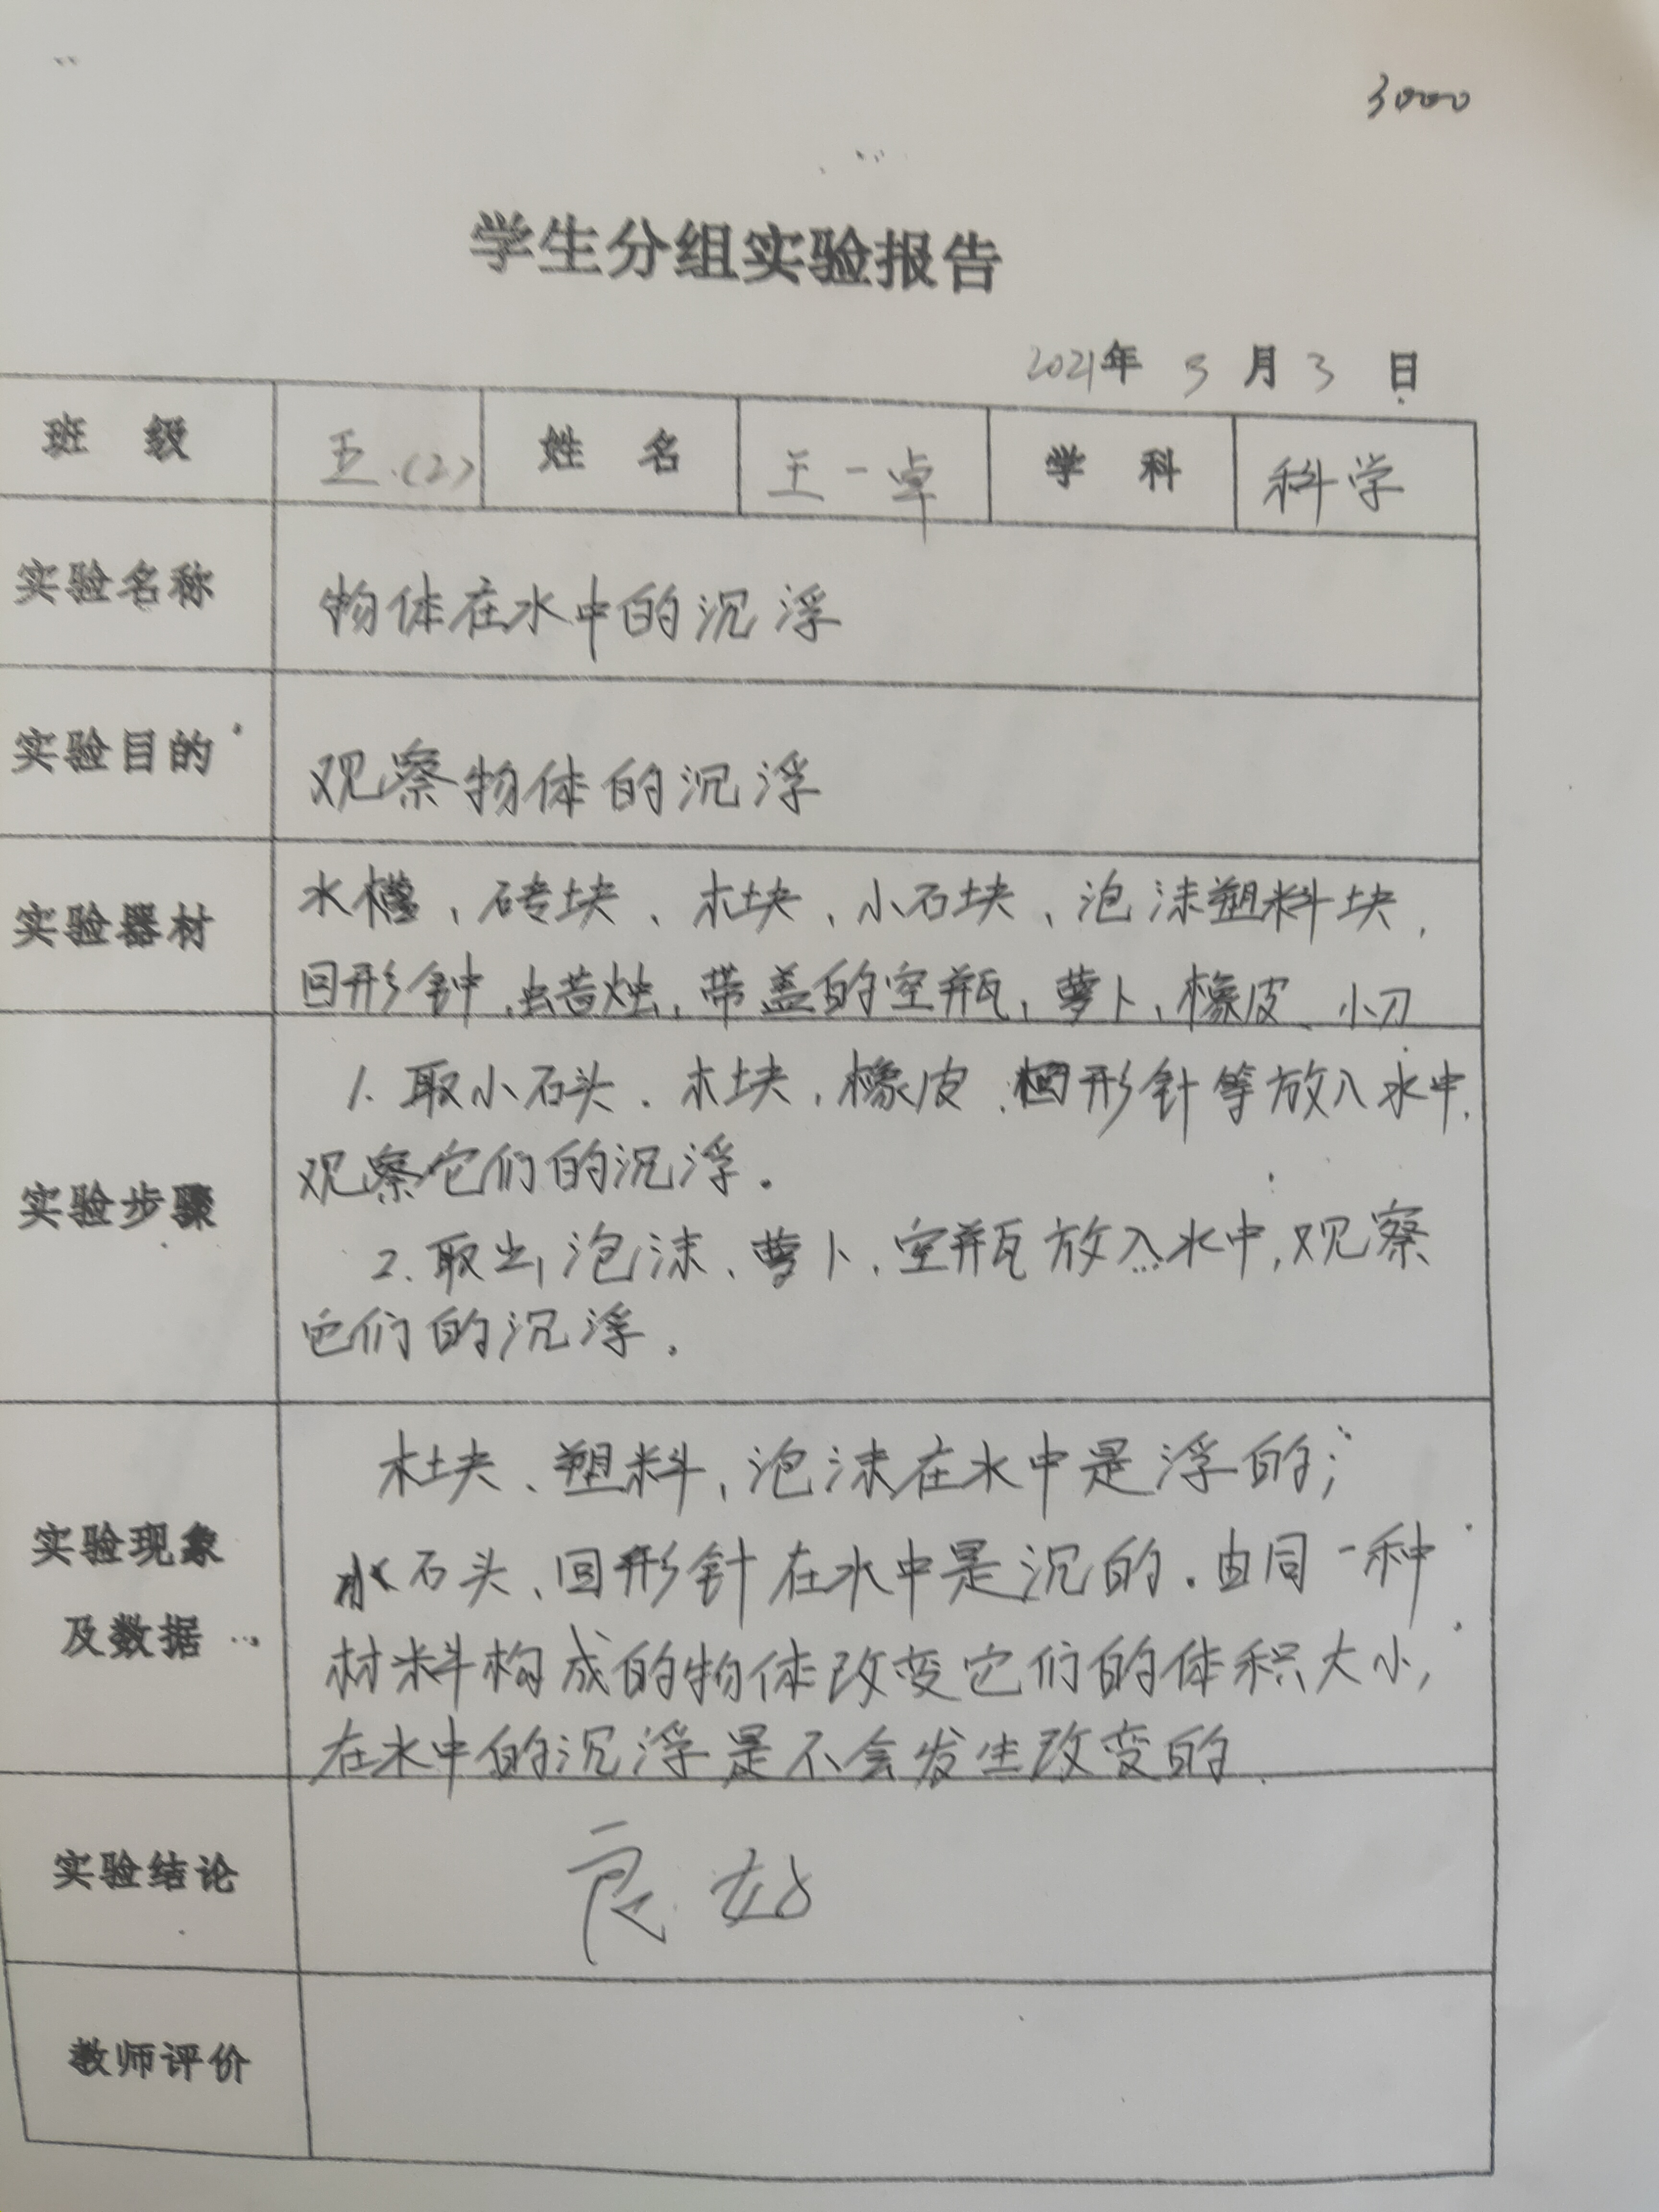 3000
学生分组实验报告
2021年 3 月 3 日
班 级 五.(2) 姓 名 王一卓 学 科 科学
实验名称 物体在水中的沉浮
实验目的 观察物体的沉浮
实验器材 水槽、砖块、木块、小石块、泡沫塑料块、
回形针、蜡烛、带盖的空瓶、萝卜、橡皮、小刀
实验步骤
1. 取小石头、木块、橡皮、回形针等放入水中,
观察它们的沉浮.
2. 取出泡沫、萝卜、空瓶放入水中,观察
它们的沉浮.
实验现象
及数据
木块、塑料、泡沫在水中是浮的;
石头、回形针在水中是沉的.由同一种
材料构成的物体改变它们的体积大小,
在水中的沉浮是不会发生改变的.
实验结论 良好
教师评价